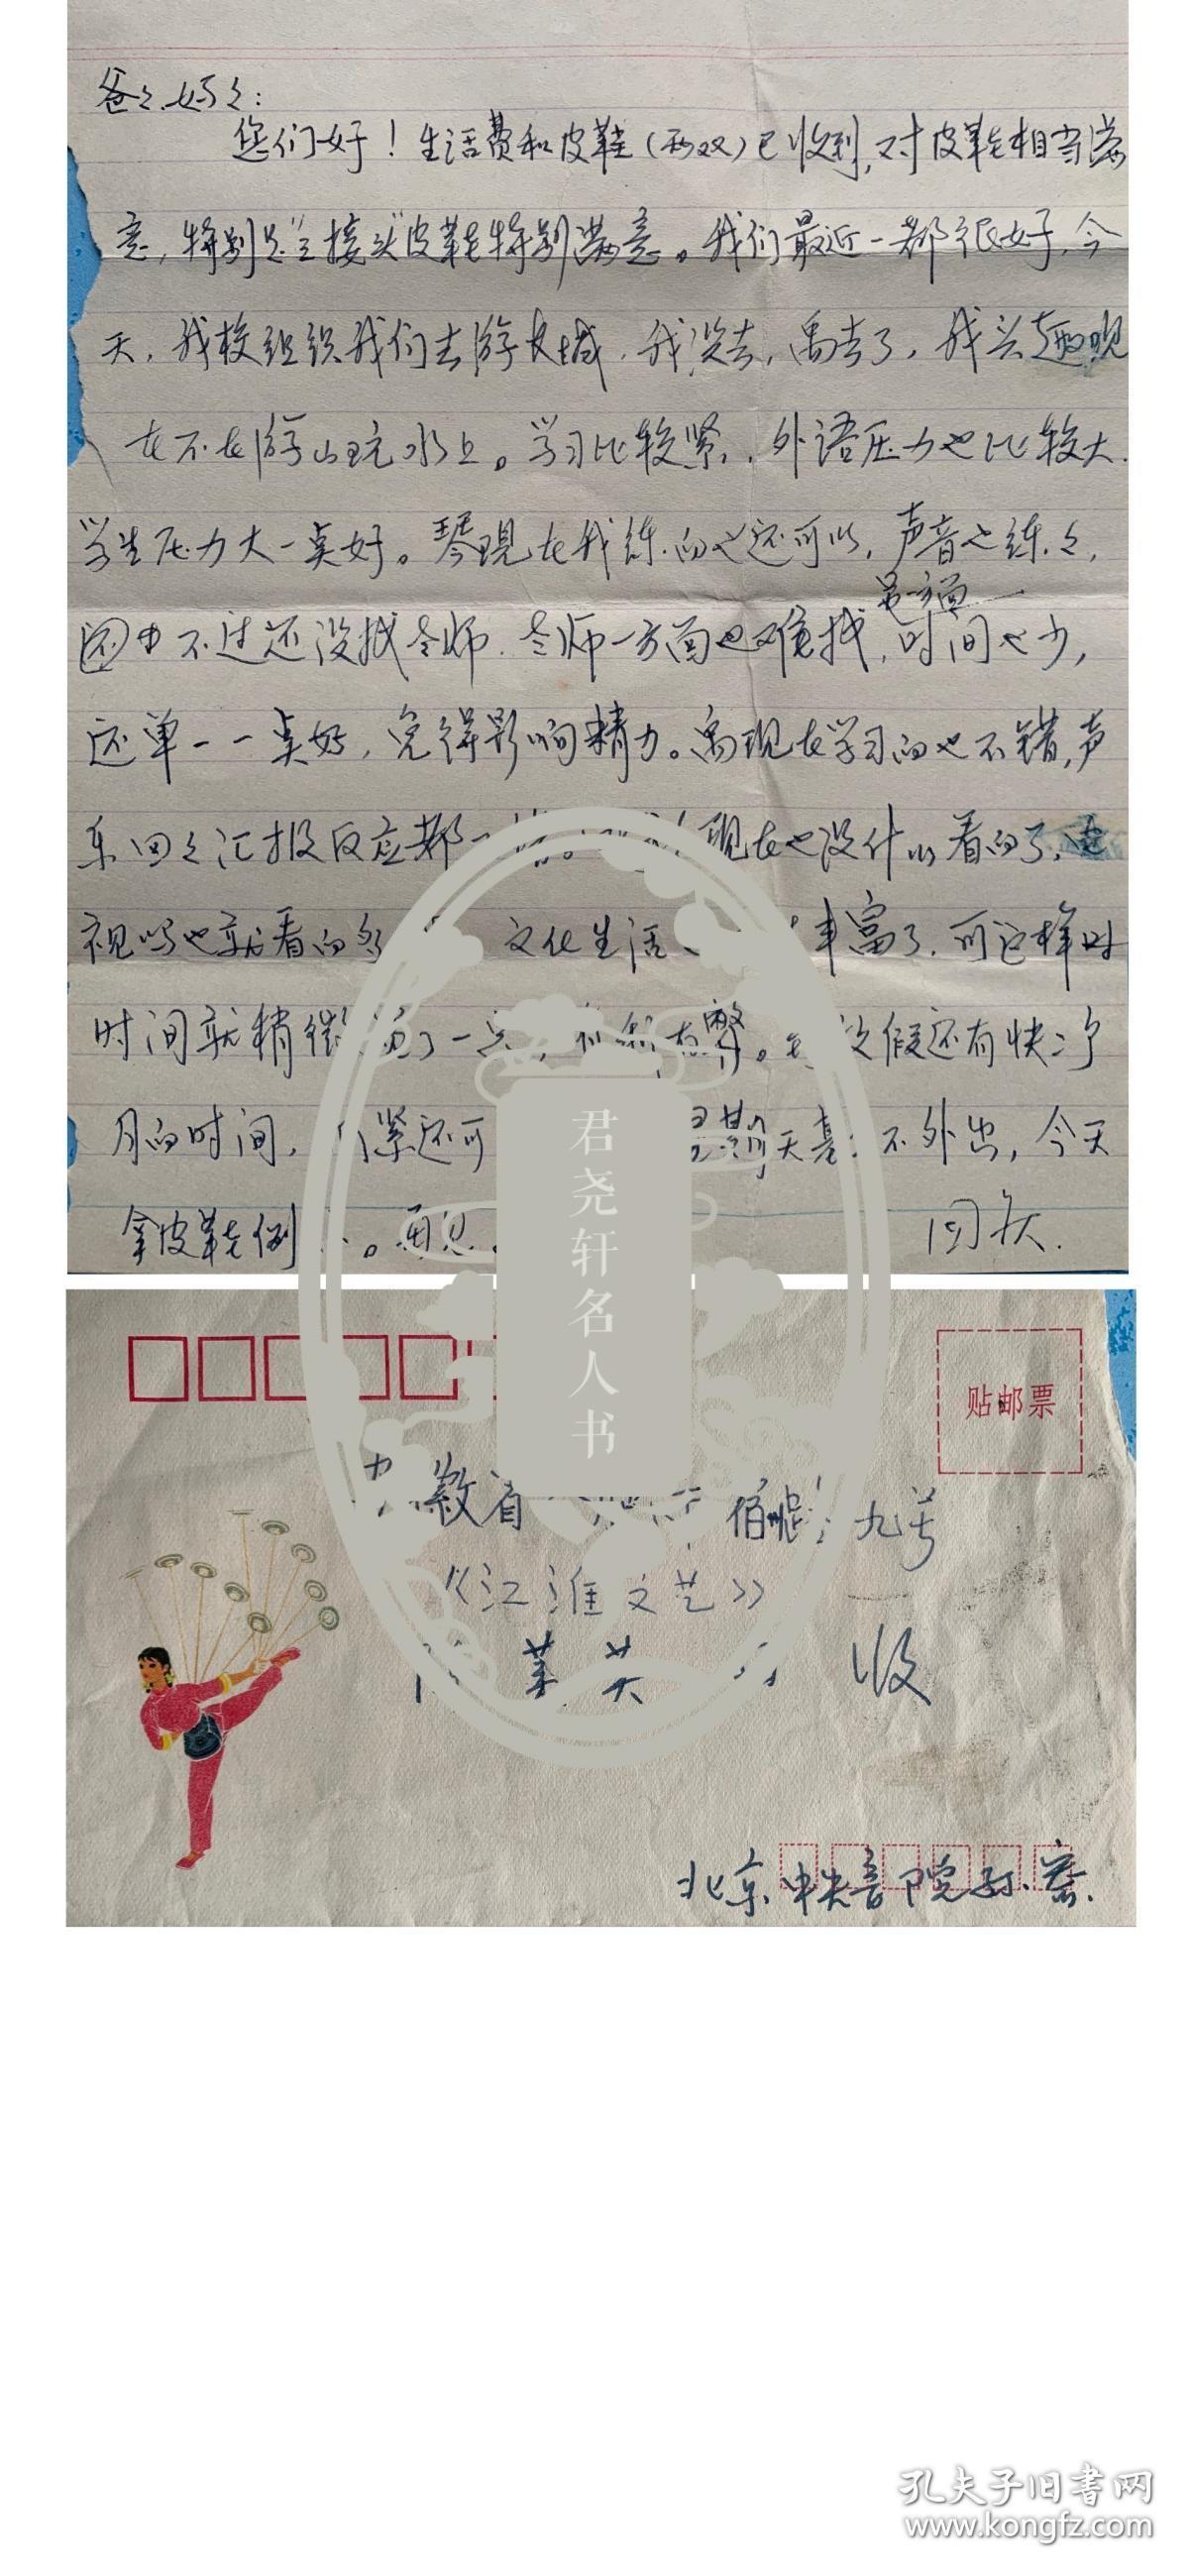 爸々妈々：
您们好！生活费和皮鞋（两双）已收到，对皮鞋相当满
意，特别是"三接头"皮鞋特别满意。我们最近一都很好，今
天，我校组织我们去游长城，我没去，禹去了，我兴趣现
在不在游山玩水上。学习比较紧，外语压力也比较大，
学生压力大一点好。琴现在我练的也还可以，声音也练々，
不过还没找老师，老师一方面也难找，另一方面时间也少，
还单一一点好，免得影响精力。禹现在学习的也不错，声
乐回々汇报反应都 现在也没什么看的了，电
视吗也就看的 文化生活 丰富了，可这样对
时间就稍微 了一点，有利有弊。放假还有快二个
月的时间， 紧还可 星期天 不外出，今天
拿皮鞋例 。再见。 回庆.
君尧轩名人书
贴邮票
徽省 九号
《江淮文艺》
莱英 收
北京中央音院孙
孔夫子旧书网
www.kongfz.com